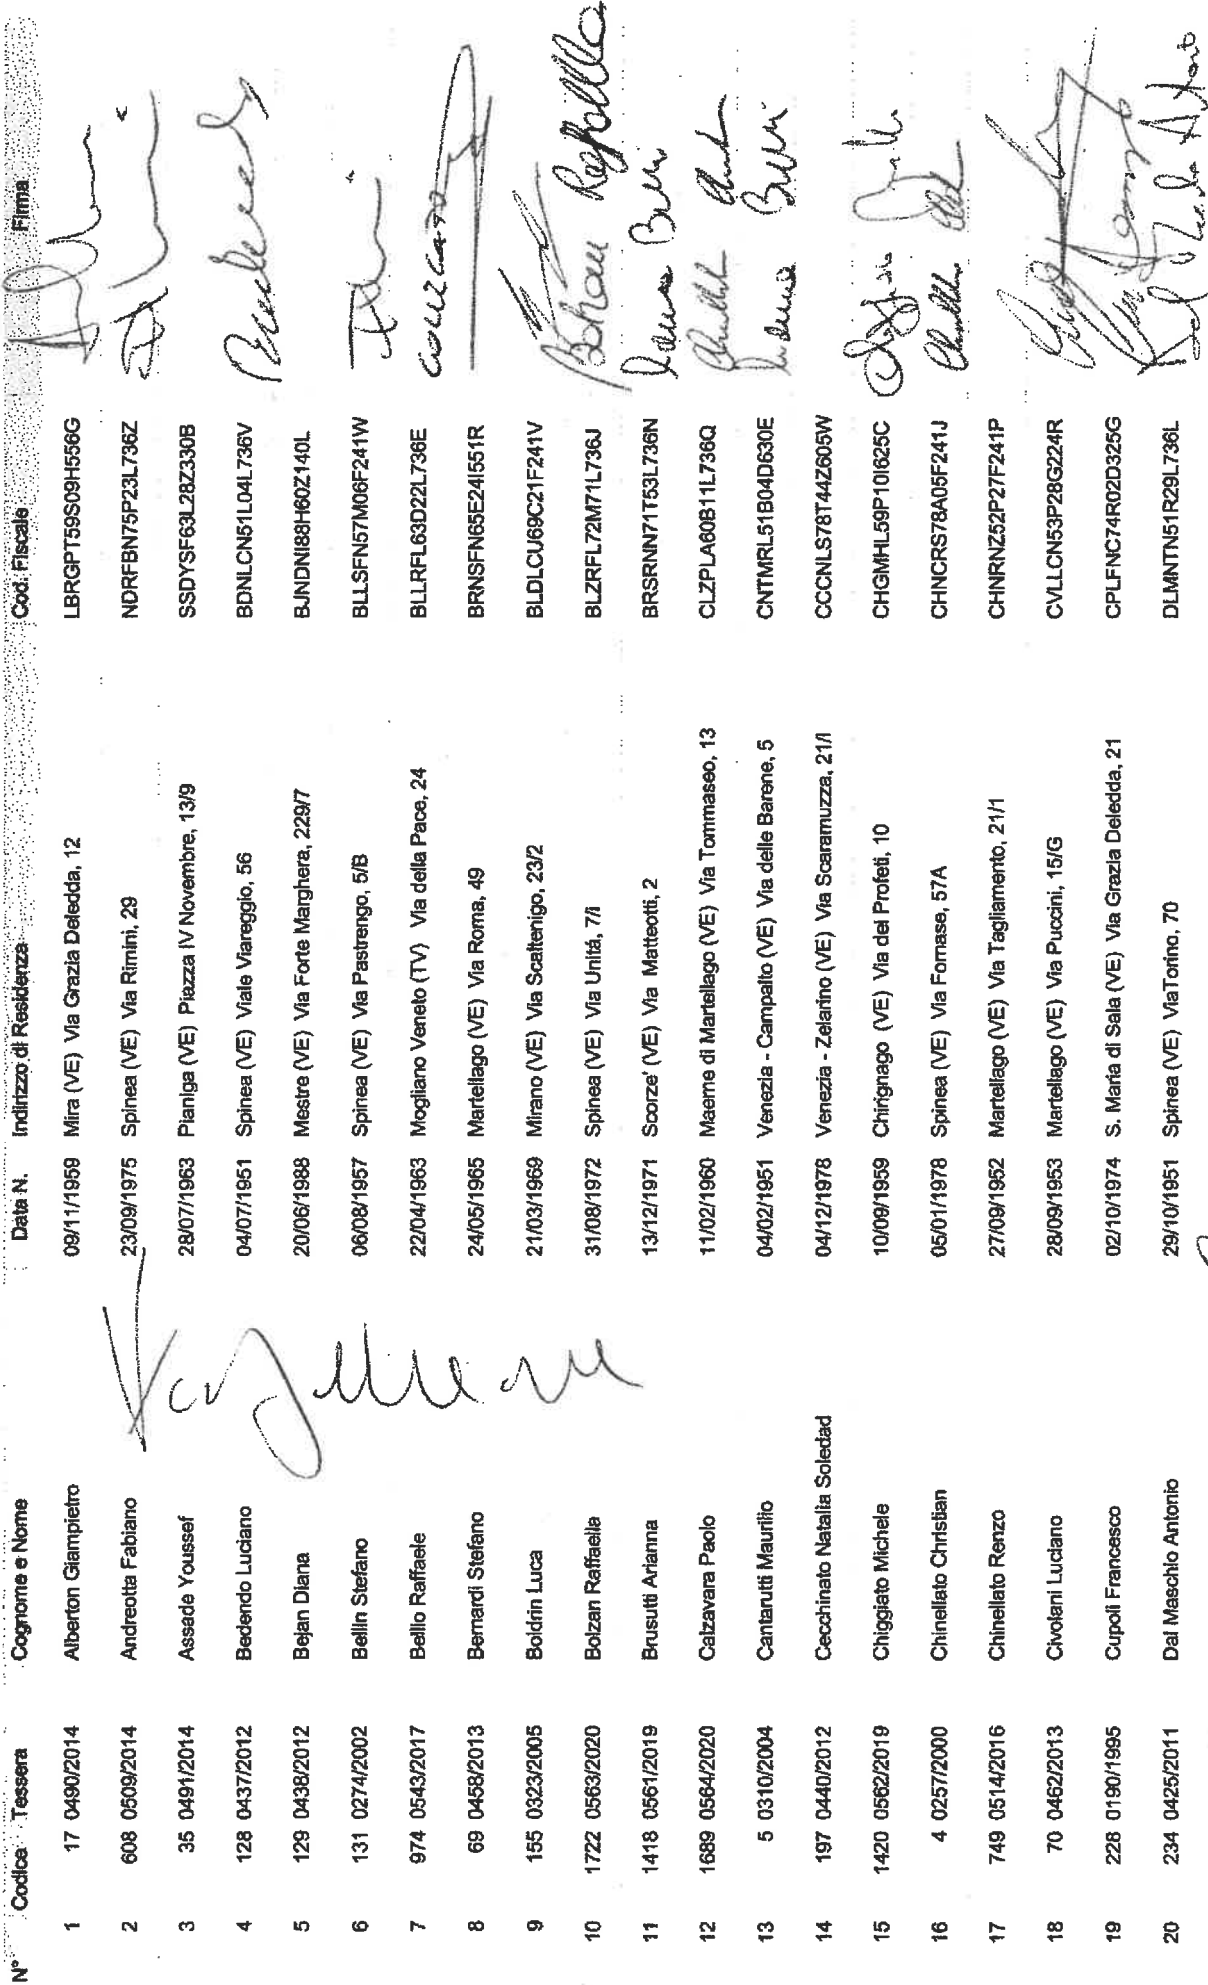 N° Codice Tessera Cognome e Nome Data N. Indirizzo di Residenza Cod. Fiscale Firma
1 17 0490/2014 Alberton Giampietro 09/11/1959 Mira (VE) Via Grazia Deledda, 12 LBRGPT59S09H556G
2 608 0509/2014 Andreotta Fabiano 23/09/1975 Spinea (VE) Via Rimini, 29 NDRFBN75P23L736Z
3 35 0491/2014 Assade Youssef 28/07/1963 Pianiga (VE) Piazza IV Novembre, 13/9 SSDYSF63L28Z330B
4 128 0437/2012 Bedendo Luciano 04/07/1951 Spinea (VE) Viale Viareggio, 56 BDNLCN51L04L736V
5 129 0438/2012 Bejan Diana 20/06/1988 Mestre (VE) Via Forte Marghera, 229/7 BJNDNI88H60Z140L
6 131 0274/2002 Bellin Stefano 06/08/1957 Spinea (VE) Via Pastrengo, 5/B BLLSFN57M06F241W
7 974 0543/2017 Bello Raffaele 22/04/1963 Mogliano Veneto (TV) Via della Pace, 24 BLLRFL63D22L736E
8 69 0458/2013 Bernardi Stefano 24/05/1965 Martellago (VE) Via Roma, 49 BRNSFN65E24I551R
9 155 0323/2005 Boldrin Luca 21/03/1969 Mirano (VE) Via Scaltenigo, 23/2 BLDLCU69C21F241V
10 1722 0563/2020 Bolzan Raffaella 31/08/1972 Spinea (VE) Via Unità, 7/i BLZRFL72M71L736J Bolzan Raffaella
11 1418 0561/2019 Brusutti Arianna 13/12/1971 Scorze' (VE) Via Matteotti, 2 BRSRNN71T53L736N
12 1689 0564/2020 Calzavara Paolo 11/02/1960 Maerne di Martellago (VE) Via Tommaseo, 13 CLZPLA60B11L736Q
13 5 0310/2004 Cantarutti Maurilio 04/02/1951 Venezia - Campalto (VE) Via delle Barene, 5 CNTMRL51B04D630E
14 197 0440/2012 Cecchinato Natalia Soledad 04/12/1978 Venezia - Zelarino (VE) Via Scaramuzza, 21/I CCCNLS78T44Z605W
15 1420 0562/2019 Chiggiato Michele 10/09/1959 Chirignago (VE) Via dei Profeti, 10 CHGMHL59P10I625C
16 4 0257/2000 Chinellato Christian 05/01/1978 Spinea (VE) Via Fornase, 57A CHNCRS78A05F241J
17 749 0514/2016 Chinellato Renzo 27/09/1952 Martellago (VE) Via Tagliamento, 21/1 CHNRNZ52P27F241P
18 70 0462/2013 Civolani Luciano 28/09/1953 Martellago (VE) Via Puccini, 15/G CVLLCN53P28G224R
19 228 0190/1995 Cupoli Francesco 02/10/1974 S. Maria di Sala (VE) Via Grazia Deledda, 21 CPLFNC74R02D325G
20 234 0425/2011 Dal Maschio Antonio 29/10/1951 Spinea (VE) ViaTorino, 70 DLMNTN51R29L736L